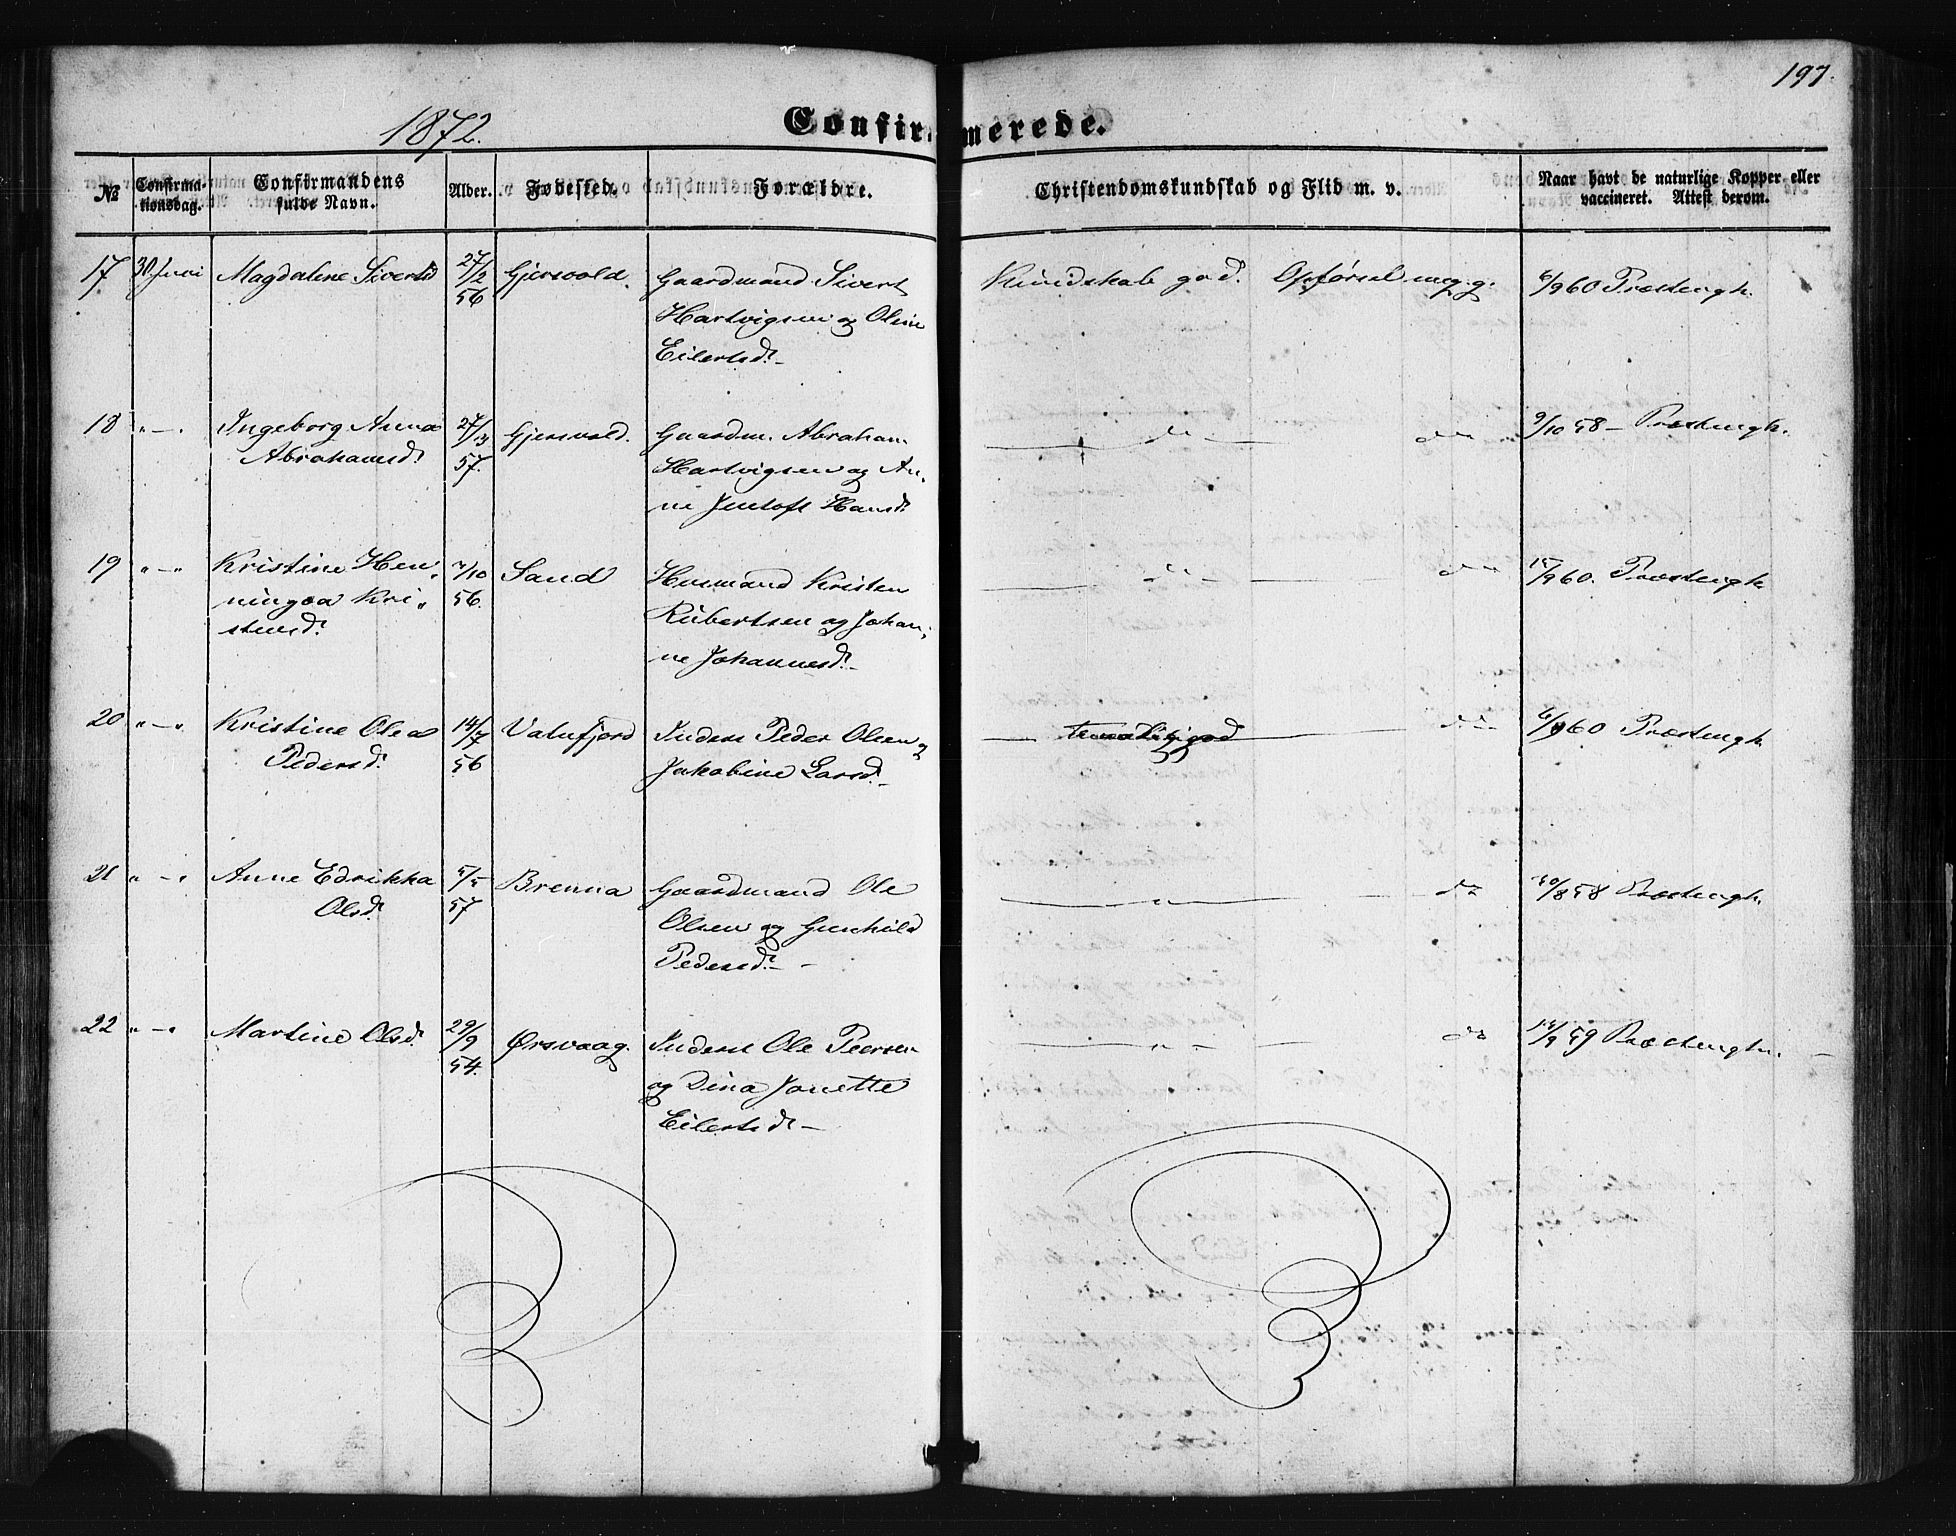 197.
1872.
Confirmerede.
№ Confirmationsdag. Confirmandens fulde Navn. Alder. Fødested. Forældre. Christendomskundskab og Flid m. v. Naar havt de naturlige Kopper eller vaccineret. Attest derom.
17 30 Juni Magdalene Sivertsd 27/2 Gjersvold. Gaardmand Sivert Kundskab god. Opførsel meg. g. 6/9 60 Præstengh.
56 Hartvigsen og Oline
Eilertsd.
18 " — " Ingeborg Anna 27/3 Gjersvold. Gaardm. Abraham — do — do 9/10 58 — Præstengh.
Abrahamsd. 57. Hartvigsen og An-
ne Hansd.
19 " — " Kristine Hen- 7/10 Sand Husmand Kristen — do — do 15/9 60. Præstengh.
ningea Kri- 56. Rubertsen og Johan-
stensd. ne Johannesd. —
20 " — " Kristine Olea 14/7 Valufjord Inderst Peder Olsen og — temmelig god do 6/9 60 Præstengh.
Pedersd. 56 Jakobine Larsd. —
21 " — " Anne Edrikka 5/5 Brenna Gaardmand Ole — " — do 30/8 58 Præstengh.
Olsd. 57 Olsen og Gunhild
Pedersd. —
22 " — " Martine Olsd. 29/9 Ørsvaag. Inderst Ole Peersen — " " — do /9 59 Præstengh.
54. og Dina Jonette
Eilertsd. —